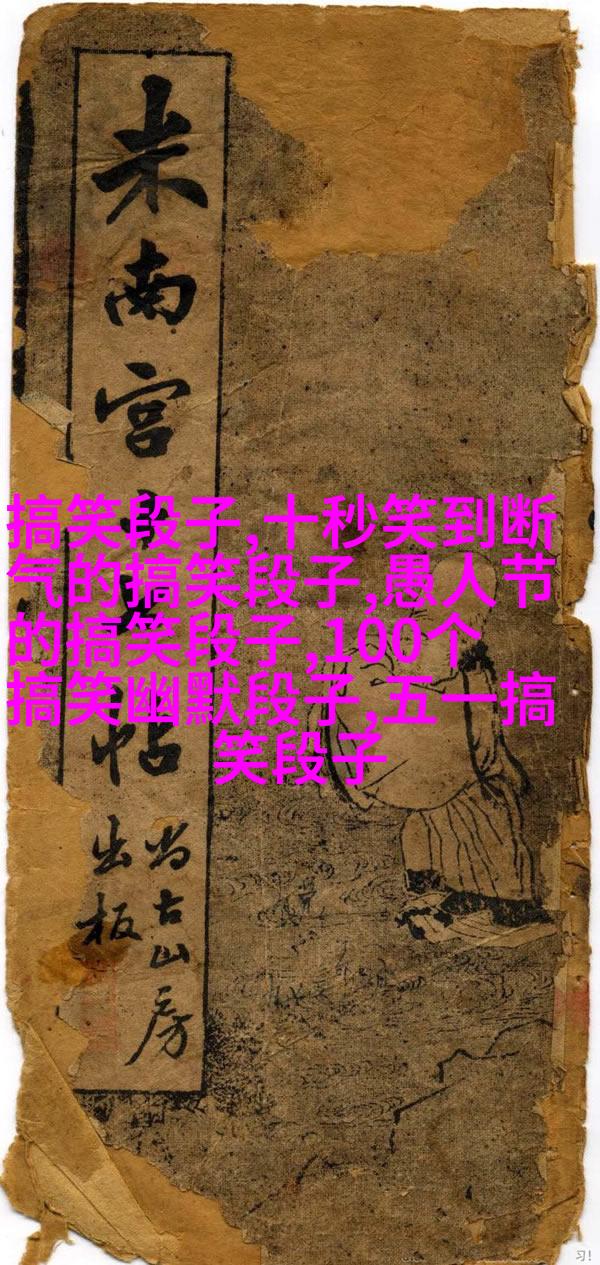 米南宮帖
尚古山房
出板
搞笑段子,十秒笑到断
气的搞笑段子,愚人节
的搞笑段子,100个
搞笑幽默段子,五一搞
笑段子
习!